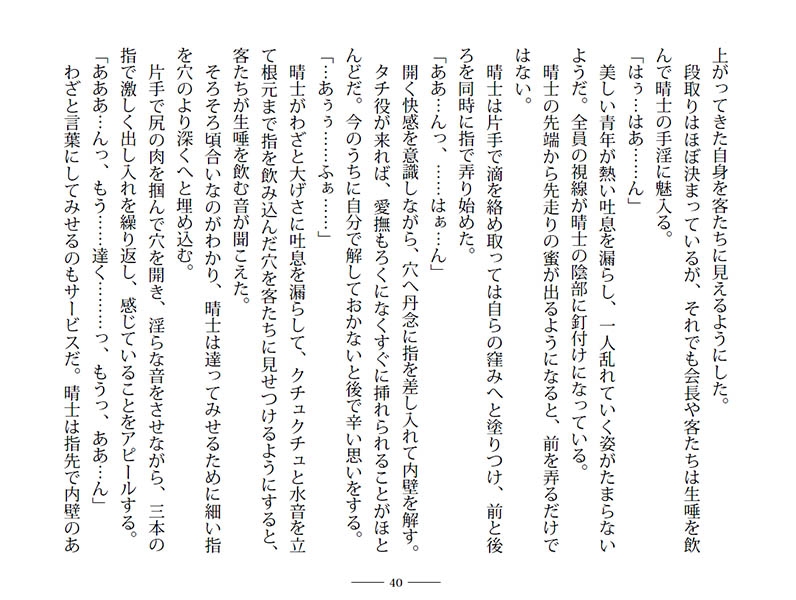 上がってきた自身を客たちに見えるようにした。
　段取りはほぼ決まっているが、それでも会長や客たちは生唾を飲
んで晴士の手淫に魅入る。
「はぅ…はあ……ん」
　美しい青年が熱い吐息を漏らし、一人乱れていく姿がたまらない
ようだ。全員の視線が晴士の陰部に釘付けになっている。
　晴士の先端から先走りの蜜が出るようになると、前を弄るだけで
はない。
　晴士は片手で滴を絡め取っては自らの窪みへと塗りつけ、前と後
ろを同時に指で弄り始めた。
「ああ…んっ、……はぁ…ん」
　開く快感を意識しながら、穴へ丹念に指を差し入れて内壁を解す。
　タチ役が来れば、愛撫もろくになくすぐに挿れられることがほと
んどだ。今のうちに自分で解しておかないと後で辛い思いをする。
「…あぅぅ……ふぁ……」
　晴士がわざと大げさに吐息を漏らして、クチュクチュと水音を立
て根元まで指を飲み込んだ穴を客たちに見せつけるようにすると、
客たちが生唾を飲む音が聞こえた。
　そろそろ頃合いなのがわかり、晴士は達ってみせるために細い指
を穴のより深くへと埋め込む。
　片手で尻の肉を掴んで穴を開き、淫らな音をさせながら、三本の
指で激しく出し入れを繰り返し、感じていることをアピールする。
「あああ…んっ、もう……達く………っ、もうっ、ああ…ん」
　わざと言葉にしてみせるのもサービスだ。晴士は指先で内壁のあ
40